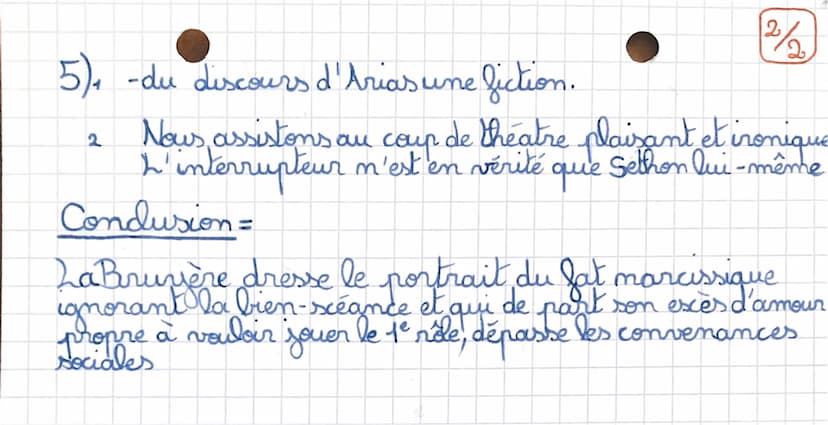 2/2
5)1 -du discours d'Arias une fiction.
2 Nous assistons au coup de théatre plaisant et ironique
L'interrupteur n'est en vérité que Sethon lui-même
Conclusion =
La Bruyère dresse le portrait du fat narcissique
ignorant la bien-scéance et qui de part son excès d'amour
propre à vouloir jouer le 1e rôle, dépasse les convenances
sociales